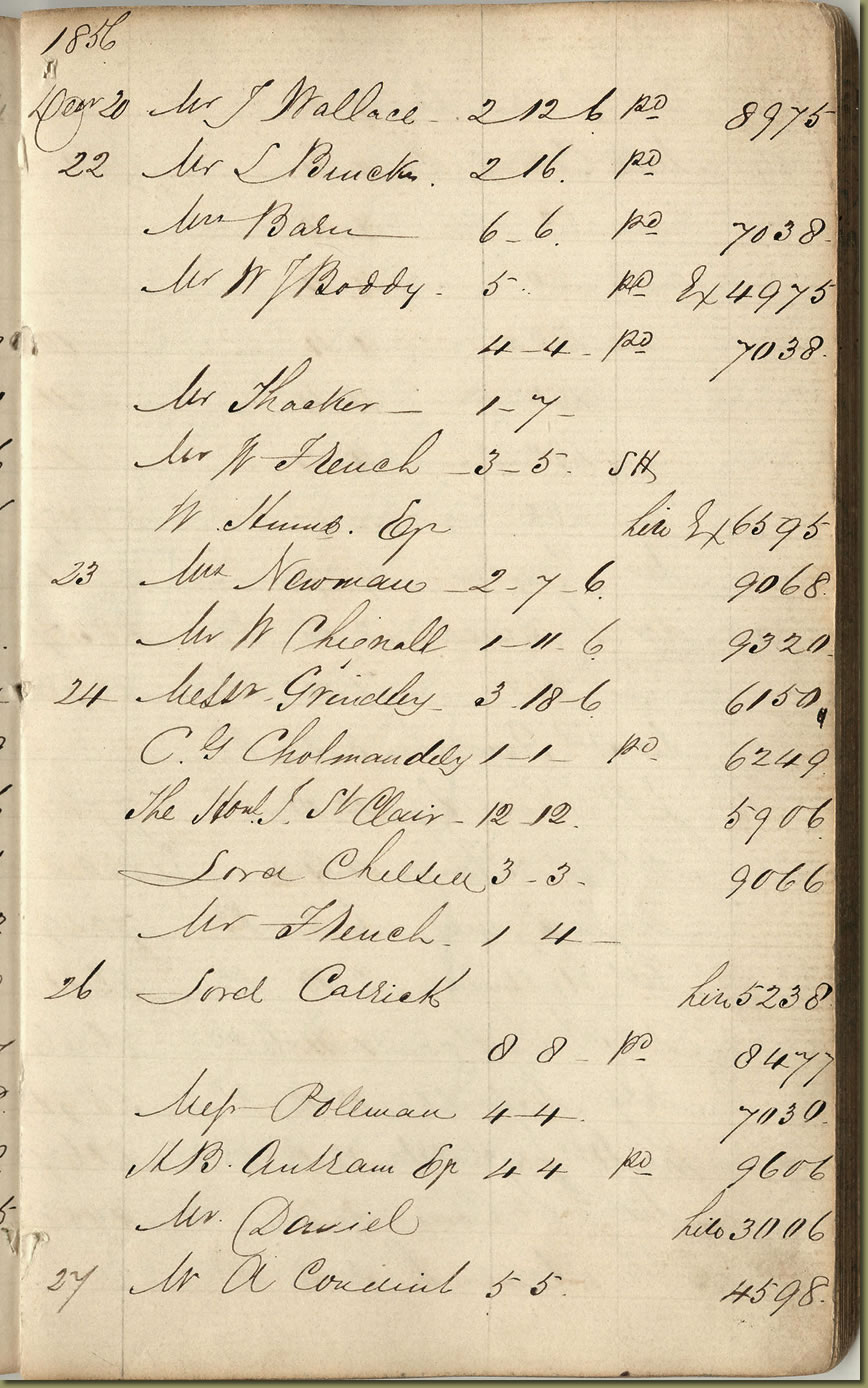 1856
Decr 20 Mr J Wallace - 2 12 6 pd 8975
22 Mr L 2 16. pd
Mrs 6 - 6. pd 7038
Mr W J Boddy - 5 pd Ex 4975
4 - 4 - pd 7038
Mr Thacker - 1 - 7 -
Mr W French - 3 - 5. SH
W Esq hire Ex 6595
23 Mrs Newman - 2 - 7 - 6. 9068
Mr W Chignall 1 - 11 - 6 9320
24 Messrs Grindley - 3 - 18 - 6 6150
C. G Cholmandely 1 - 1 - pd 6249
The Honl. J. St Clair - 12 12. 5906
Lord Chelsea 3 - 3 - 9066
Mr French - 1 4 -
26 Lord Carrick hire 5238
8 8 - pd 8477
Mess Poleman 4 - 4. 7030
H B. Antram Esq 4 4 pd 9606
Mr. Daniel hire 3006
27 Mr A 5 5. 4598